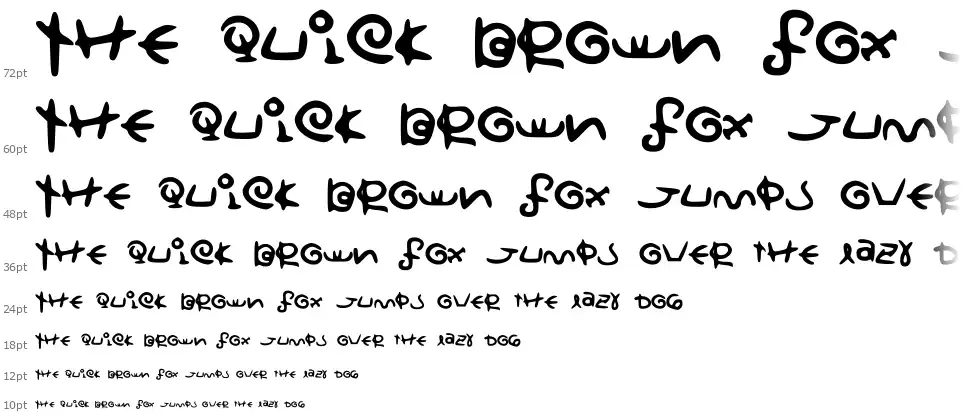 72pt THE QUICK BROWN FOX
60pt THE QUICK BROWN FOX JUMP
48pt THE QUICK BROWN FOX JUMPS OVER
36pt THE QUICK BROWN FOX JUMPS OVER THE LAZY D
24pt THE QUICK BROWN FOX JUMPS OVER THE LAZY DOG
18pt THE QUICK BROWN FOX JUMPS OVER THE LAZY DOG
12pt THE QUICK BROWN FOX JUMPS OVER THE LAZY DOG
10pt THE QUICK BROWN FOX JUMPS OVER THE LAZY DOG